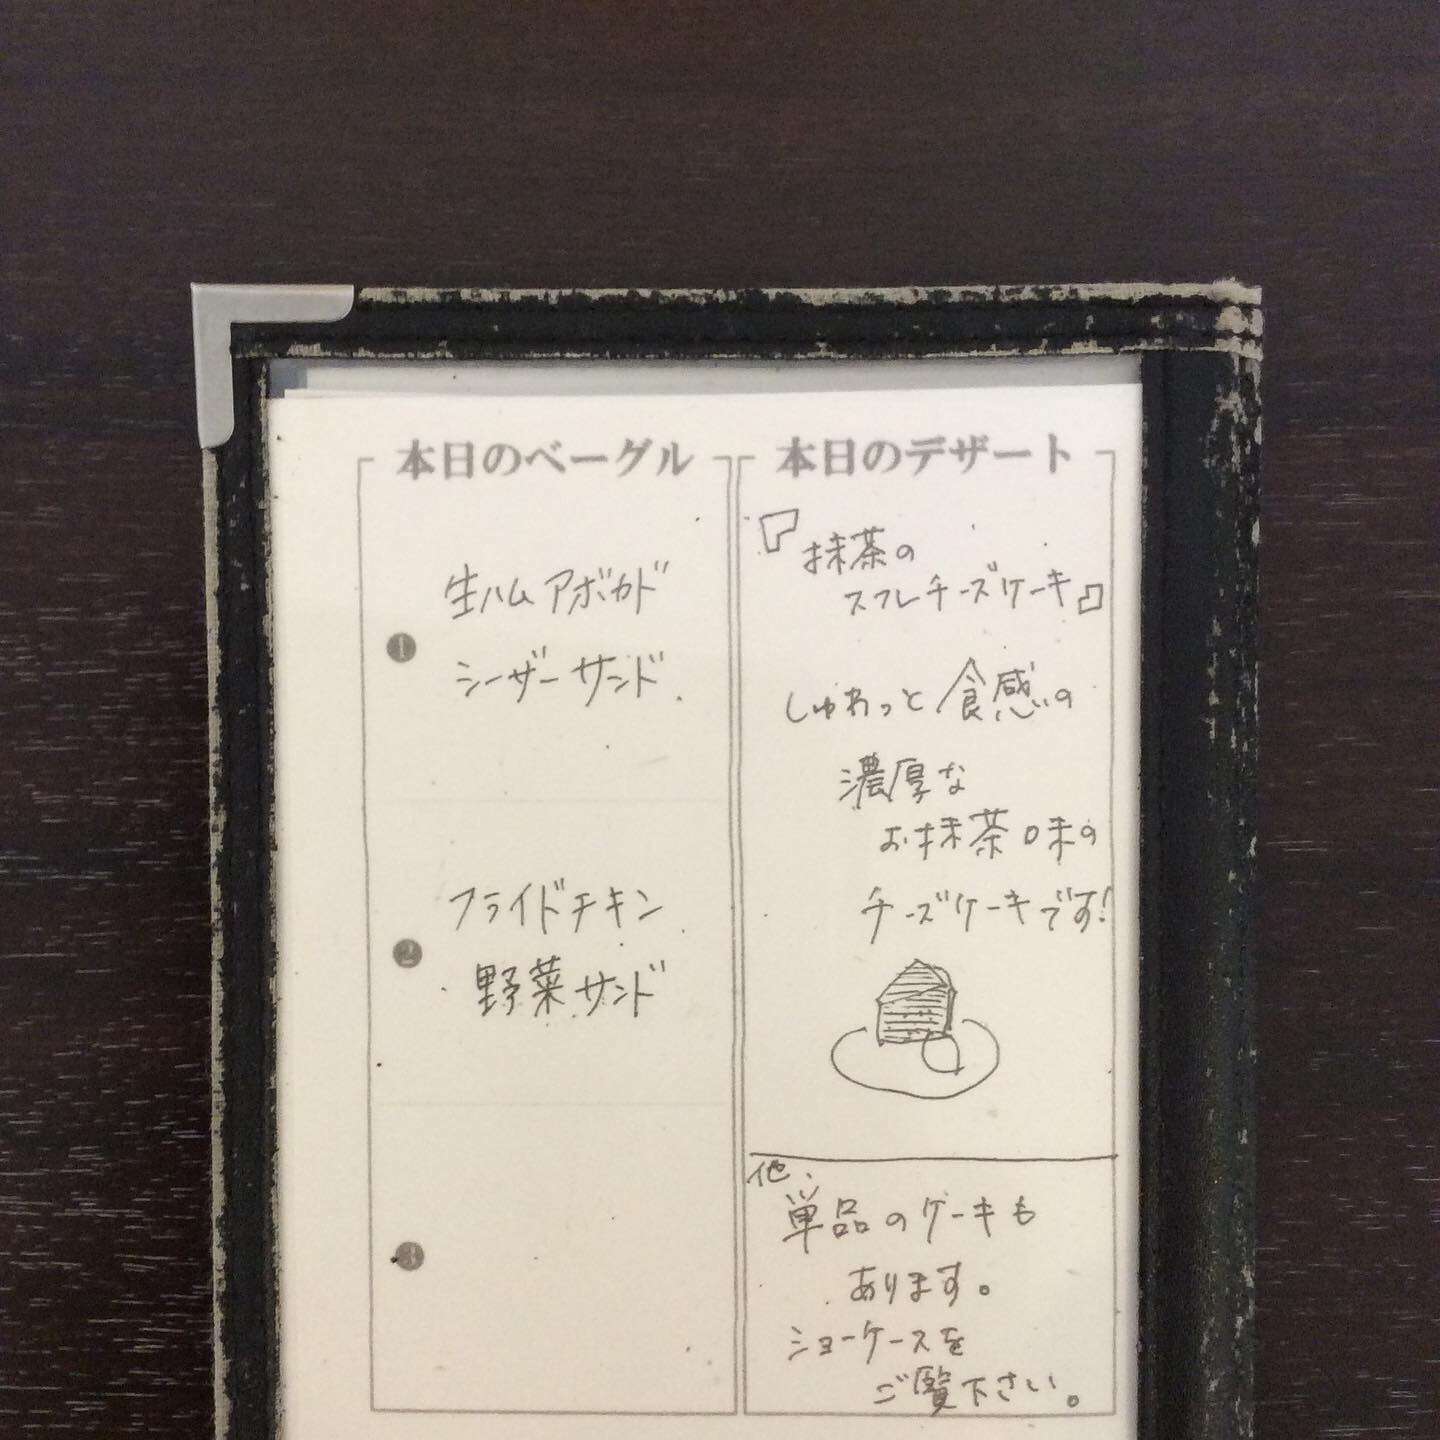 本日のベーグル
❶
生ハムアボカド
シーザーサンド
❷
フライドチキン
野菜サンド
❸
本日のデザート
『抹茶の
スフレチーズケーキ』
しゅわっと食感の
濃厚な
お抹茶味の
チーズケーキです!
他、
単品のケーキも
あります。
ショーケースを
ご覧下さい。